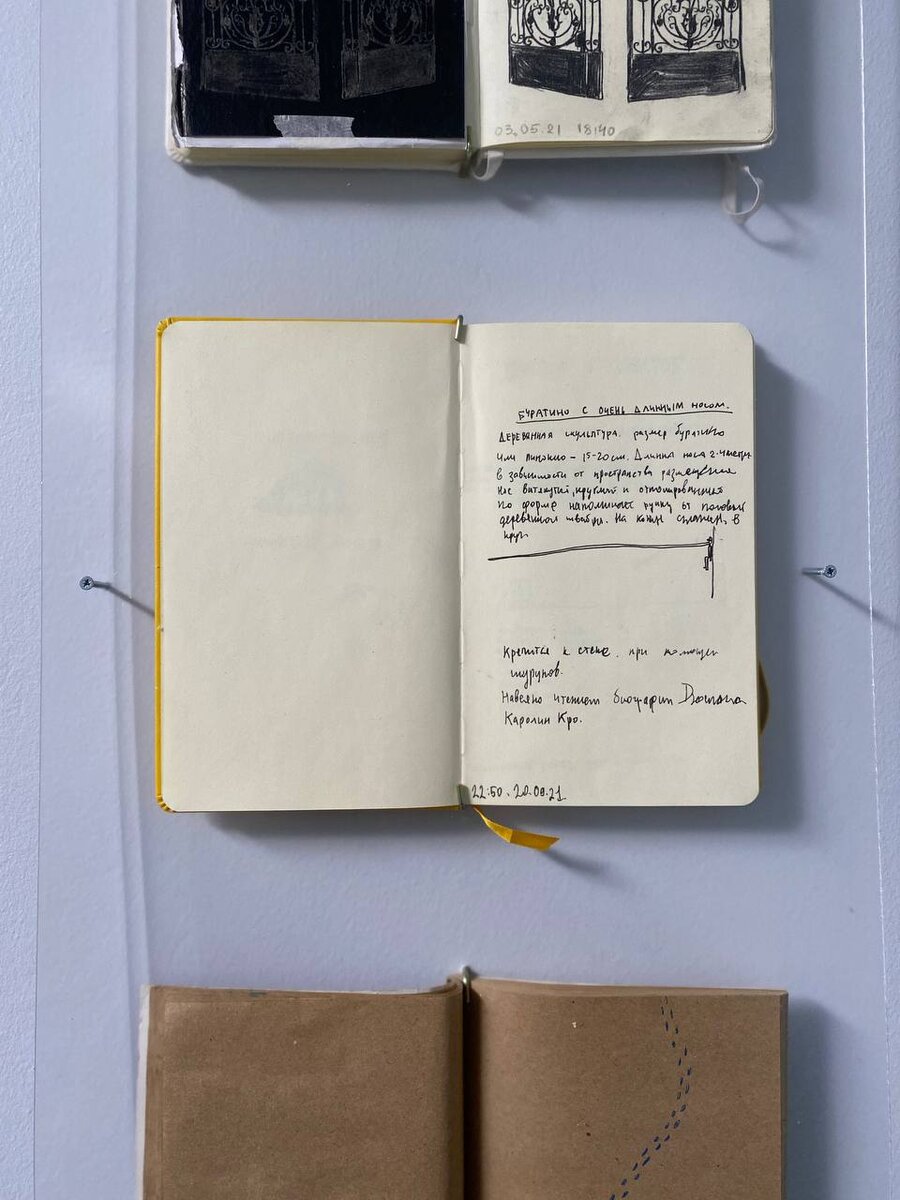 03.05.21 18:40
БУРАТИНО С ОЧЕНЬ ДЛИННЫМ НОСОМ.
Деревянная скульптура. размер буратино
или пинокио – 15-20см. Длинна носа 2-4метра
в зависимости от пространства размещения
Нос вытянутый, круглый и отполированный
По форме напоминает ручку от половой
деревянной швабры. На конце сплющен, в
круг.
Крепится к стене. при помощи
шурупов.
Навеяно чтением биографии Дюшана
Каролин Кро.
22:50. 20.09.21